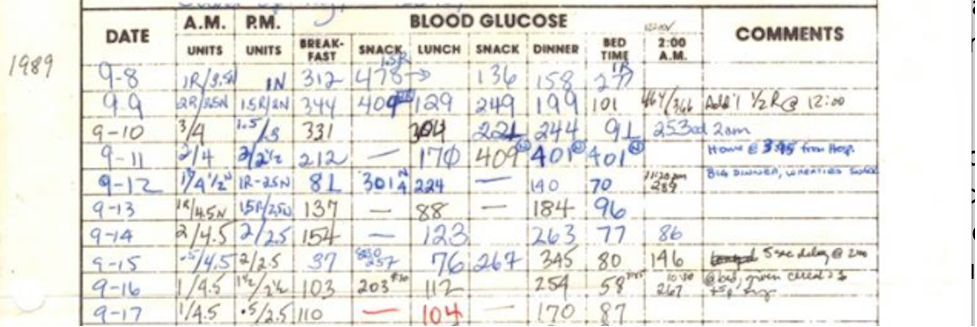 A.M. P.M. BLOOD GLUCOSE
DATE UNITS UNITS BREAK-FAST SNACK LUNCH SNACK DINNER BED TIME 2:00 A.M. COMMENTS
1989
9-8 1R/3.5N 1N 312 478 → 136 158 277
9-9 2R/3.5N 1.5R/2N 344 409 129 249 199 101 464/366 Add'l 1/2 R @ 12:00
9-10 3/4 1.5/3 331 304 221 244 91 253 2am
9-11 2/4 2/2 1/2 212 — 170 409 401 401 Home @ 3:45 from Hosp.
9-12 1R-2.5N 81 301 224 — 140 70 11:20pm 239 BIG DINNER, WHEATIES SNACK
9-13 1R/4.5N 1.5R/2.5N 137 — 88 — 184 96
9-14 2/4.5 2/2.5 154 — 123 263 77 86
9-15 .5/4.5 2/2.5 37 257 76 267 345 80 146 5 sec delay @
9-16 1/4.5 1 1/2/2 1/2 103 203 112 254 58 10:30 267 @bed, given
9-17 1/4.5 .5/2.5 110 — 104 — 170 87